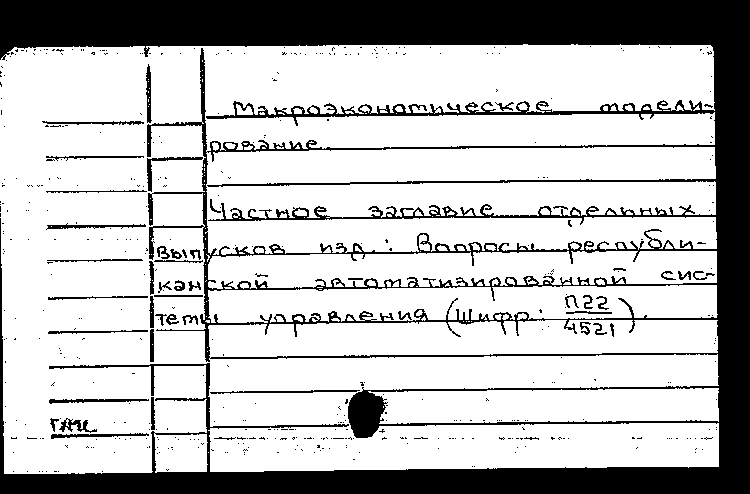 Макроэкономическое модели-
рование.
Частное заглавие отдельных
выпусков изд.: Вопросы республи-
канской автоматизированной сис-
темы управления (Шифр: П22
4521).